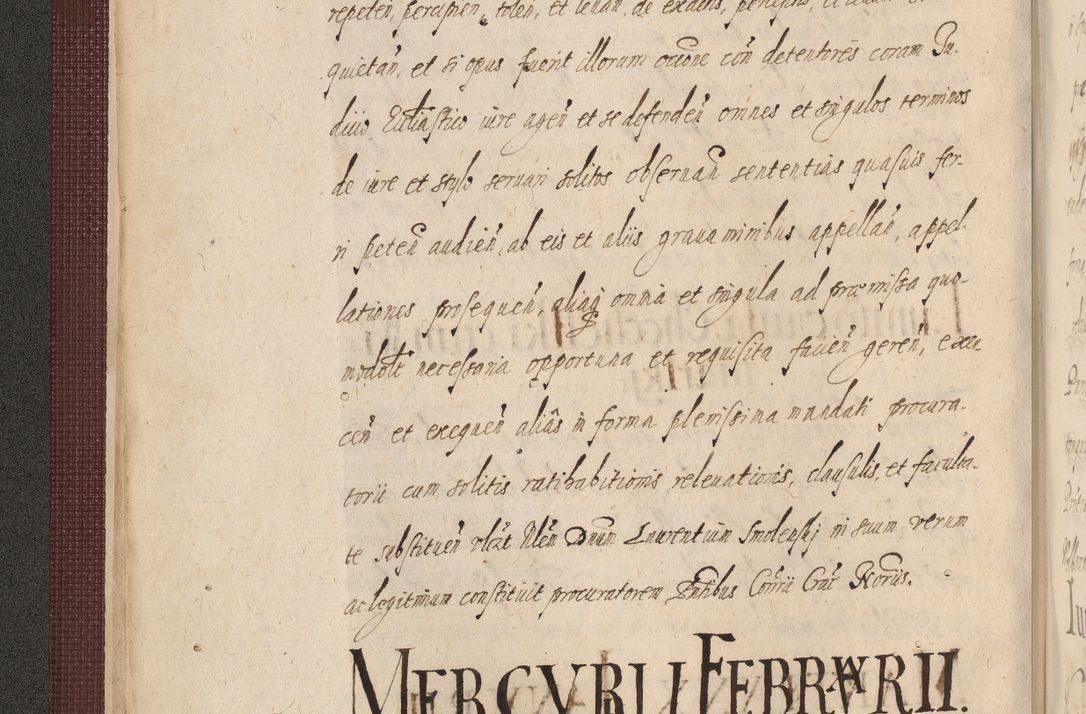 repeten, percipien, tolen, et levan, de exactis, perceptis,
quietan, et si opus fuerit illorum occõne cõn detentores coram Ju-
dicio Eccl̃iastico iure agen̄ et se defenden̄ omnes et singulos terminos
de iure et stylo servari solitos observan̄ sententias quasuis fer-
ri peten̄ audien̄, ab eis et aliis gravaminibus appellan̄, appel-
lationes prosequen̄, aliaq omnia et singula ad præmissa quo-
modol̃t necessaria opportuna et requisita facien̄ geren̄, exer
cen̄ et exequen̄ aliâs in forma plenissima mandati procura-
torii cum solitis ratihabitionis relevationis, clausulis, et faculta-
te substituen̄ Dnum Laurentium Smolensky in suum verum
ac legitimum constituit procuratorem Pñtibus Crac Noriis.
MERCVRII I FEBRVARII.